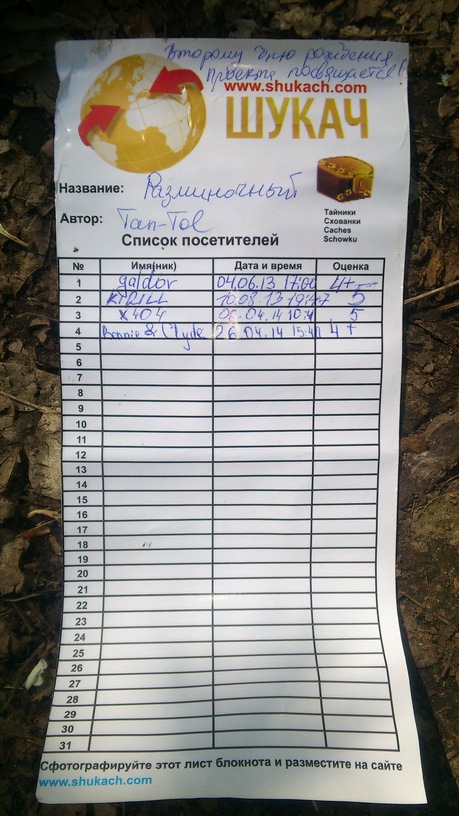 Второму дню рождения
проекта посвящается!
www.shukach.com
ШУКАЧ
Название: Разминочный
Автор: Tan-Tol
Тайники
Схованки
Caches
Schowku
Список посетителей
№ Имя(ник) Дата и время Оценка
1 galdor 04.06.13 17:00 4+
2 KIRILL 10.08.13 19:47 5
3 x404 06.04.14 5
4 Bonnie & Clyde 26.04.14 4+
5
6
7
8
9
10
11
12
13
14
15
16
17
18
19
20
21
22
23
24
25
26
27
28
29
30
31
Сфотографируйте этот лист блокнота и разместите на сайте
www.shukach.com